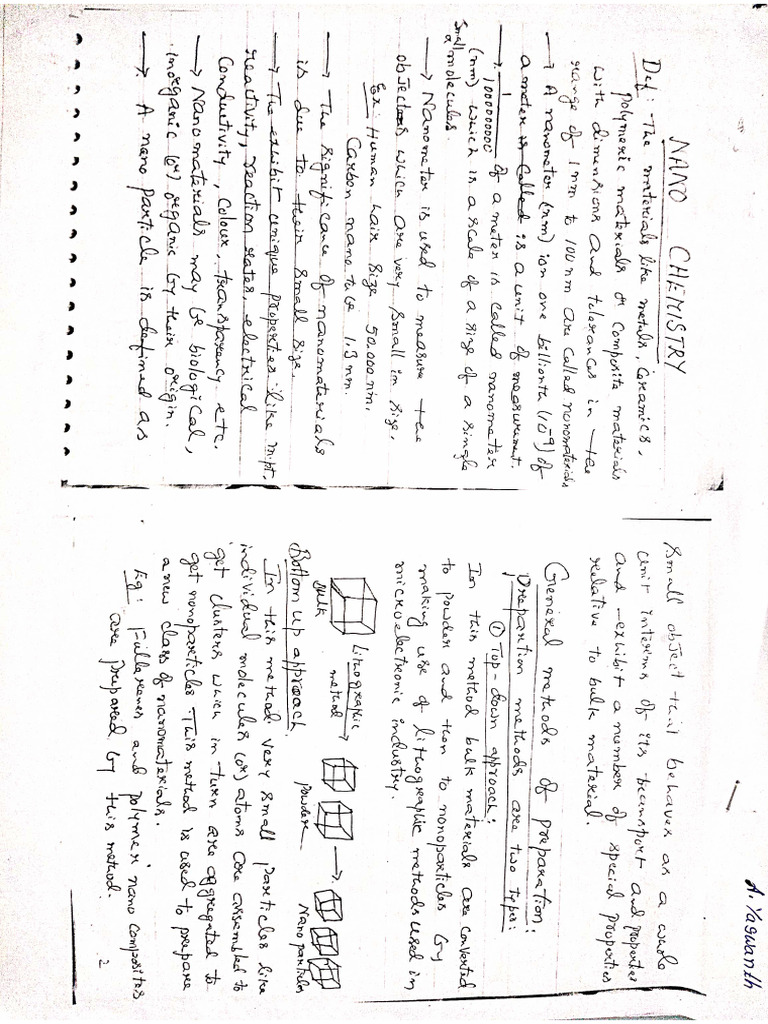 NANO CHEMISTRY
Def: - The materials like metals, Ceramics,
polymeric materials or Composite materials
with dimensions and tolerances in the
range of 1 nm to 100 nm are Called nanomaterials
→ A nanometer (nm) is on one billionth (10⁻⁹) of
a meter is Called is a unit of measurement.
→ 1/1000000000 of a meter is called nanometer
(nm) which is a scale of a size of a single
Small a molecules.
→ Nanometer is used to measure the
objects which are very small in size.
Ex: Human hair size 50,000 nm.
Carbon nano tube 1.3 nm.
→ The significance of nanomaterials
is due to their small size
→ The exhibit unique properties like m.pt,
reactivity, reaction rates, electrical
Conductivity, Colour, transparency etc.
→ Nano materials may be biological,
inorganic (or) organic by their origin.
→ A nano particle is defined as
A. Yaswanth
Small object that behaves as a whole
unit interms of its transport and properties
and exhibit a number of special properties
relative to bulk material.
General methods of preparation:
Prepartion methods are two types:
① Top-down approach:
In this method bulk materials are converted
to powder and then to nanoparticles by
making use of lithographic methods used in
microelectronic industry.
Lithographic
method
Bulk
Powder
Nano particles
Bottom up approach
In this method very small particles like
individual molecules (or) atoms are assembled to
get clusters which in turn are aggregated to
get nanoparticles. This method is used to prepare
a new class of nanomaterials.
Eg: Fullerenes and polymer nano composites
are prepared by this method.
2